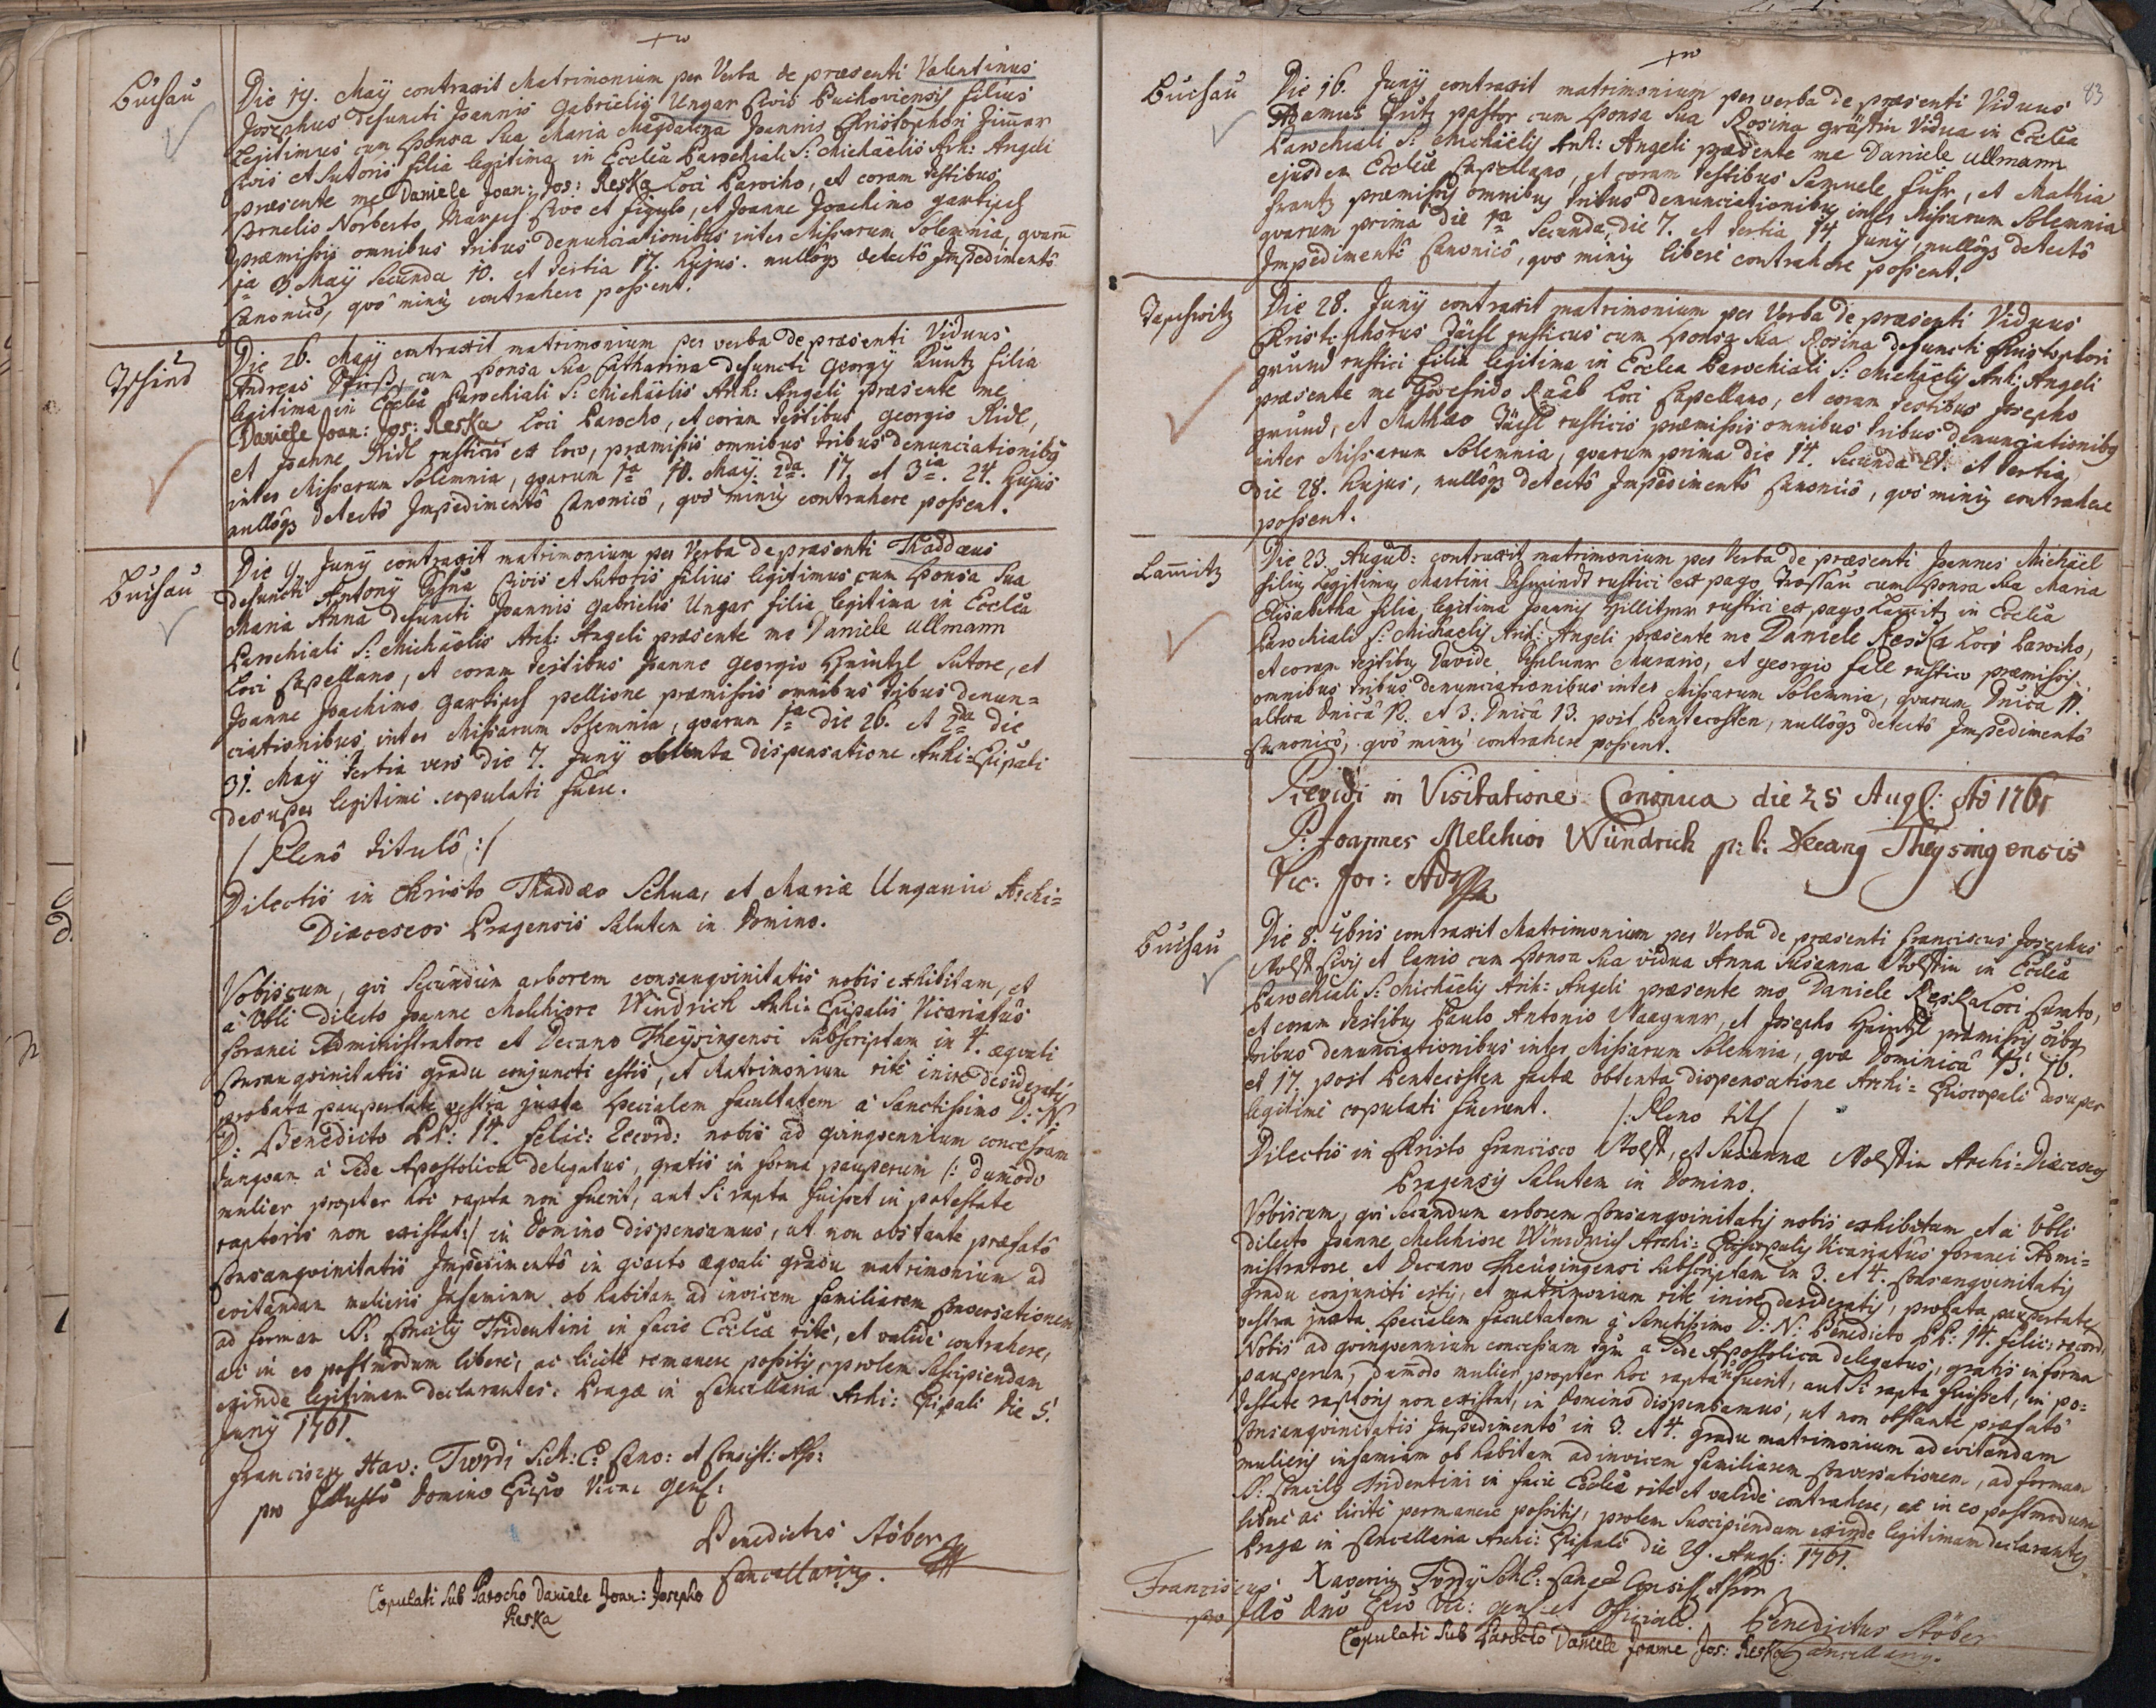 Buchau
Die 19. Maÿ contraxit Matrimonium per Verba de præsenti Valentinus
Josephus defuncti Joannis Gabrielis Ungar Civis Buchoviensis filius
Legitimus cum Sponsa Sua Maria Magdalena Joannis Christophori
Civis et Sutoris filia legitima in Eccl͞a Parochiali S: Michaëlis Arch: Angeli
præsente me Daniele Joan: Jos: Reska Loci Parocho, et coram testibus
Cornelio Norberto Cive et figulo, et Joanne Joachimo Gartisch
præmissis omnibus tribus denunciationibus inter Missarum Solemnia, quarū
1a 3 Maÿ Secunda 10. et tertia 17. hujus. nullôq3 detectô Impedimentô
Canonicô, quô minus contrahere possent.
Tschies
Die 26. Maÿ contraxit matrimonium per verba de præsenti Viduus
Andreas cum Sponsa Sua Catharina defuncti Georgÿ Kuntz filia
legitima in Eccl͞a Parochiali S: Michaëlis Arch: Angeli præsente me
Daniele Joan: Jos: Reska Loci Parocho, et coram testibus Georgio Ridl,
et Joanne Ridl rusticis ex loco, præmissis omnibus tribus denunciationibus
inter Missarum Solemnia, quarum 1a 10. Maÿ. 2da. 17. et 3ia. 24. hujus
nullôq3 detectô Impedimentô Canonicô, quô minus contrahere possent.
Buchau
Die 9. Junÿ contraxit matrimonium per Verba de præsenti Thaddæus
defuncti Antonÿ Schua Civis et Sutoris filius legitimus cum Sponsa Sua
Maria Anna defuncti Joannis Gabrielis Ungar filia legitima in Eccl͞a
Parochiali S: Michaëlis Arch: Angeli præsente me Daniele Ullmann
Loci Capellano, et coram testibus Joanne Georgio Heintzl Sutore, et
Joanne Joachimo Gartisch pellione præmissis omnibus tribus denun=
ciationibus inter Missarum Solemnia, quarum 1a die 26. et 2da die
31. Maÿ tertia vero die 7. Junÿ obtenta dispensatione Archi=Ep͞ipali
desuper legitime copulati fuere.
/ Plenô titulô :/
Dilectis in Christo Thaddæo Schua, et Mariæ Ungarin Archi=
Diæceseos Pragensis Salutem in Domino.
Vobiscum, qui Secundùm arborem consangvinitatis nobis exhibitam, et
à V͞bli dilecto Joanne Melchiore Windrich Archi=Ep͞ipalis Vicariatûs
foranei Administratore et Decano Theÿsingensi Subscriptam in 4. æquali
Consangvinitatis gradu conjuncti estis, et Matrimonium ritè inire desideratis
probata paupertate vestra juxta Specialem facultatem à Sanctissimo D: N:
D: Benedicto PP: 14. felic: record: nobis ad quinquennium concessam
tanquam à Sede Apostolica delegatus, gratis in forma pauperum /: dummodo
mulier propter hoc rapta non fuerit, aut Si rapta fuisset in potestate
raptoris non existat:/ in Domino dispensamus, ut non obstante præfatô
Consangvinitatis Impedimentô in quarto æquali gradu matrimonium ad
evitandam mulieris Infamiam ob habitam ad invicem familiarem Conversationem
ad formam SS: Concilÿ Tridentini in facie Eccl͞iæ ritè, et validè contrahere,
ac in eo postmodum liberè, ac licitè remanere possitis, prolem Suscipiendam
exinde legitimam declarantes. Pragæ in Cancellaria Archi: Ep͞ipali Die 5.
Junÿ 1761.
Franciscus Xav: Twrdi Cano: et Consist: Ass:
pro Domino Gen͞l:
Benedictus Stöber
Cancellarius.
Copulati Sub Parocho Daniele Joan: Josepho
Reska
83
Buchau
Die 16. Junÿ contraxit matrimonium per verba de præsenti Viduus
Adamus Fritz pastor cum Sponsa Sua Rosina Vidua in Eccl͞a
Parochiali S: Michaëlis Arch: Angeli præsente me Daniele Ullmann
ejusdem Eccl͞iæ Capellano, et coram testibus Samuele Fuhr, et Mathia
Frantz præmissis omnibus tribus denunciationibus inter Missarum Solemnia
quarum prima die 1a Secunda, die 7. et tertia 14 Junÿ, nullôq3 detectô
Impedimentô Canonicô, quô minus liberè contrahere possent.
Taschwitz
Die 28. Junÿ contraxit matrimonium per Verba de præsenti Viduus
Christophorus rusticus cum Sponsa Sua Rosina defuncti Christophori
Grund rustici filia legitima in Eccl͞a Parochiali S: Michaëlis Arch: Angeli
præsente me Raab Loci Capellano, et coram testibus Josepho
Grund, et Mathæo rusticis præmissis omnibus tribus denunciationibus
inter Missarum Solemnia, quarum prima die 14. Secunda 21. et tertia
die 28. hujus, nullôq3 detectô Impedimentô Canonicô, quô minus contrahere
possent.
Lam̅itz
Die 23. August: contraxit matrimonium per Verba de præsenti Joannes Michäel
filius Legitimus Martini Schmiedt rustici ex pago cum Sponsa Sua Maria
Elisabetha filia legitima Joannis rustici ex pago Lam̅itz in Eccl͞a
Parochiali S: Michaëlis Arch: Angeli præsente me Daniele Reska Loci Parocho,
et coram testibus Davide Murario, et Georgio rustico præmissis
omnibus tribus denunciationibus inter Missarum Solemnia, quarum D͞nica 11.
altera D͞nicâ 12. et 3. D͞nicâ 13. post Pentecosten, nullôq3 detectô Impedimentô
Canonicô, quô minus contrahere possent.
Revidi in Visitatione Canonica die 25 Aug͞l: Aõ 1761
P: Joannes Melchior Wündrich p: t: Decang Theÿsingensis
Vic: for: Ad
Buchau
Die 8. 7bris contraxit Matrimonium per Verba de præsenti Franciscus Josephus
Civis et Lanio cum Sponsa Sua vidua Anna Susanna in Eccl͞a
Parochiali S: Michaëlis Arch: Angeli præsente me Daniele Reska Loci Curato,
et coram testibus Paulo Antonio Waagner, et Josepho Heintzl præmissis o͞ibus
tribus denunciationibus inter Missarum Solemnia, quæ Dominicâ 15. 16.
et 17. post Pentecosten factæ obtenta dispensatione Archi=Episcopali desuper
legitimè copulati fuerunt. /: Pleno titl /
Dilectis in Christo Francisco et Susannæ Archi=Diæceseos
Pragensis Salutem in Domino.
Vobiscum, qui Secundum arborem Consangvinitatis nobis exhibitam et à V͞bli
dilecto Joanne Melchiore Windrich Archi=Episcopalis Vicariatûs foranei Admi=
nistratore et Decano Theüsingensi Subscriptam in 3. et 4. Consangvinitatis
Gradu conjuncti estis, et matrimonium ritè inire desideratis, probata paupertate
vestra juxta Specialem facultatem à Sanctissimo D: N: Benedicto PP: 14. felic: record:
Nobis ad quinquennium concessam tqm̅ a Sede Apostolica delegatus, gratis in forma
pauperum, dum̅odo mulier propter hoc rapta n̅ fuerit, aut Si rapta fuisset, in po=
testate raptoris non existat, in Domino dispensamus, ut non obstante præfatô
Consangvinitatis Impedimentô in 3. et 4. gradu matrimonium ad evitandam
mulieris infamiam ob habitam ad invicem familiarem Conversationem, ad formam
SS: Concilÿ Tridentini in facie Eccl͞iæ ritè et validè contrahere, ac in eo postmodum
liberè ac licitè permanere possitis, prolem Suscipiendam exinde legitimam declarantes.
Pragæ in Cancellaria Archi: Ep͞ipali die 29. Aug͞l: 1761.
Franciscus Xaverius Consist. Assor
pro D͞nô Vic: gen͞l et Officiale. Benedictus Stöber
Copulati Sub Parocho Daniele Joanne Jos: Reska Cancellarius.